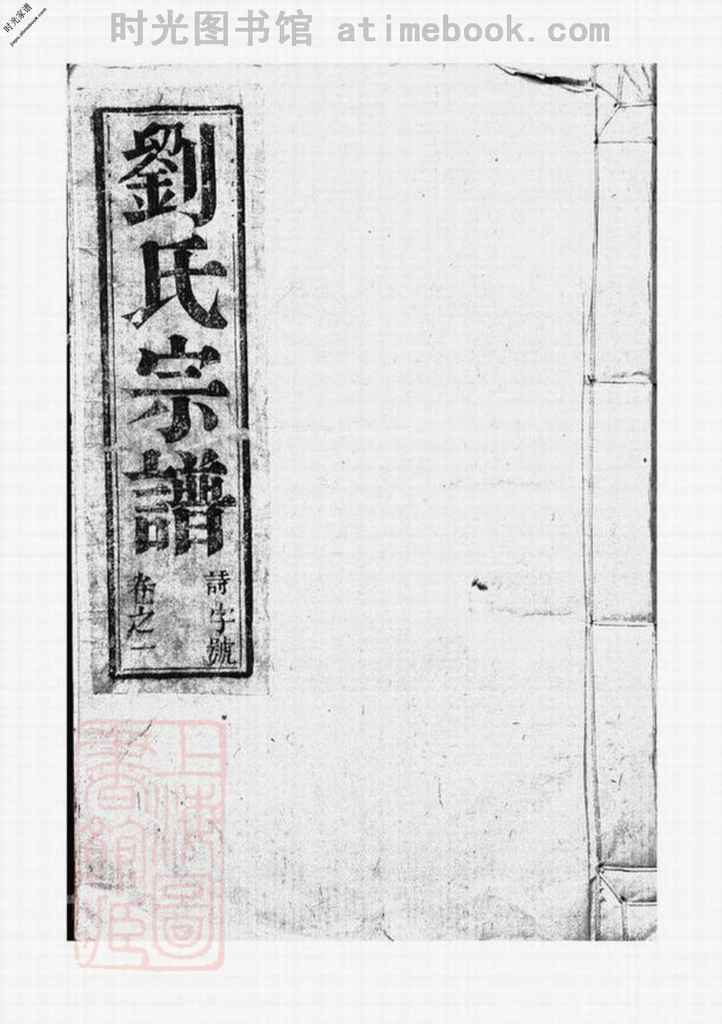 时光图书馆 atimebook.com
时光家谱
劉氏宗譜
詩字號
卷之一
上海圖
書館藏